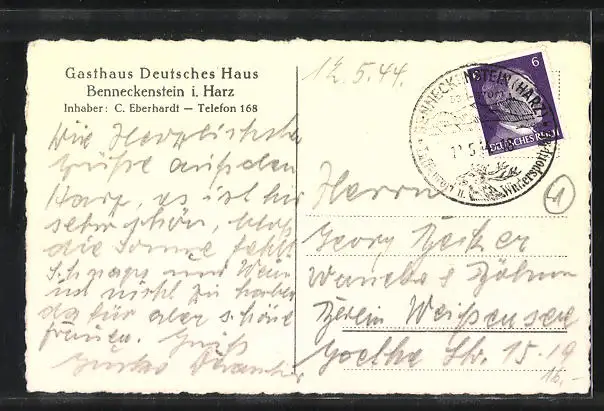 Gasthaus Deutsches Haus
Benneckenstein i. Harz
Inhaber: C. Eberhardt — Telefon 168
Die Herzlichsten
Grüße aus dem
Harz, es ist hir
sehr schön, bloß
die Sonne fehlt
Schnaps und Wein
ist nicht zu haben
da für aber schöne
Frauen. Gruß
12.5.44.
BENNECKENSTEIN (HARZ)
Wintersportplatz
6
DEUTSCHES REICH
Herrn
Georg Becker
Berlin Weißensee
Goethe Str. 15-19
16.-